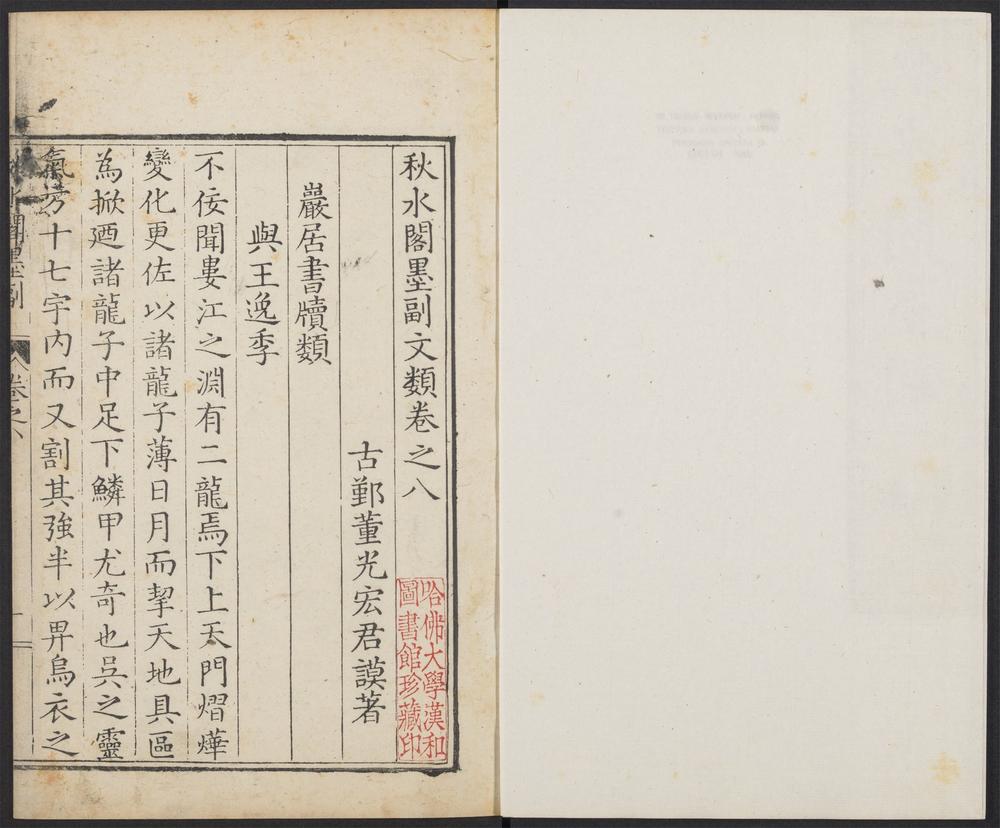 秋水閣墨副文類卷之八
古鄞董光宏君謨著
巖居書牘類
與王逸季
不佞聞婁江之淵有二龍焉下上天門熠燁
變化更佐以諸龍子薄日月而挈天地具區
為掀迺諸龍子中足下鱗甲尤奇也吳之靈
氣方十七宇内而又割其強半以畀烏衣之
水閣墨副
卷之八
哈佛大學漢和
圖書館珍藏印